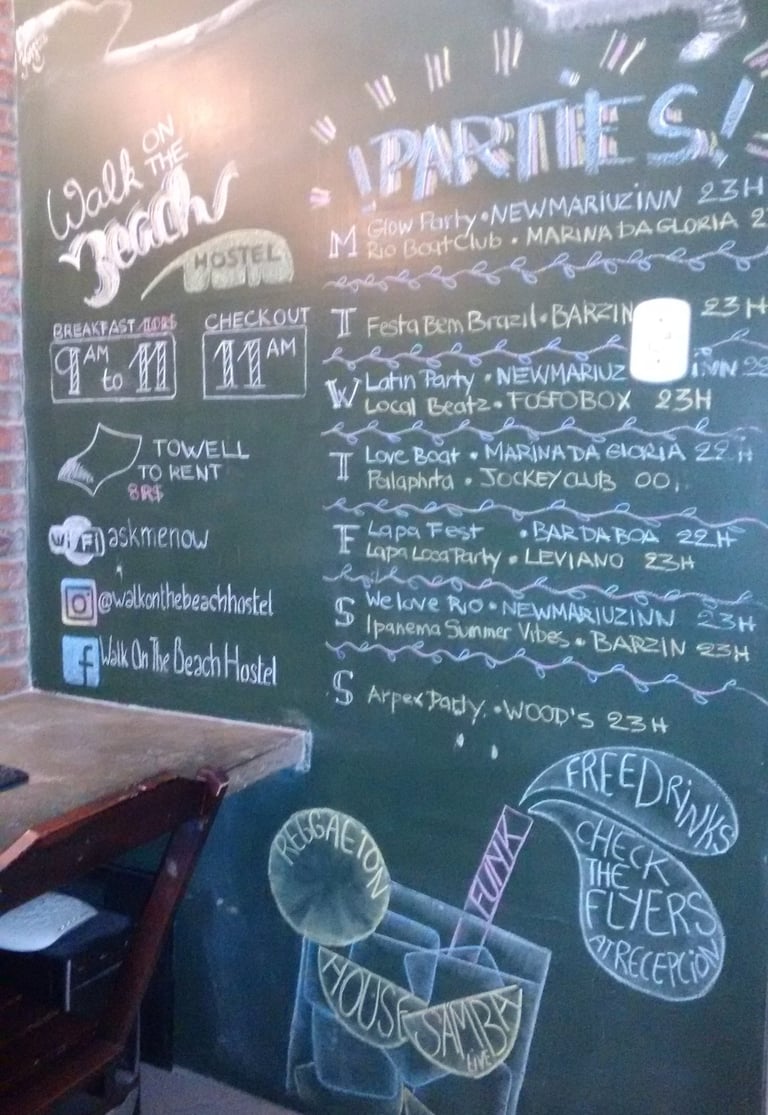 Walk ON THE
Beach
HOSTEL
BREAKFAST
9AM to 11
CHECKOUT
11AM
TOWELL
TO RENT
8R$
WiFi askmenow
@walkonthebeachhostel
f Walk On The Beach Hostel
¡PARTiES!
M Glow Party • NEWMARIUZiNN 23H
Rio Boat Club • MARINA DA GLORIA
T Festa Bem Brazil • BARZIN 23H
W Latin Party • NEWMARIUZ iNN
Local Beatz • FOSFOBOX 23H
T Love Boat • MARINA DA GLORIA 22H
JOCKEY CLUB 00
F Lapa Fest • BAR DA BOA 22H
Lapa Loca Party • LEVIANO 23H
S We love Rio • NEWMARIUZINN 23H
Ipanema Summer Vibes • BARZIN 23H
S Arpex Party • WOOD'S 23H
FREE DRiNKS
CHECK
THE
FLYERS
AT RECEPCIÓN
REGGAETON
FUNK
HOUSE
SAMBA
LiVE